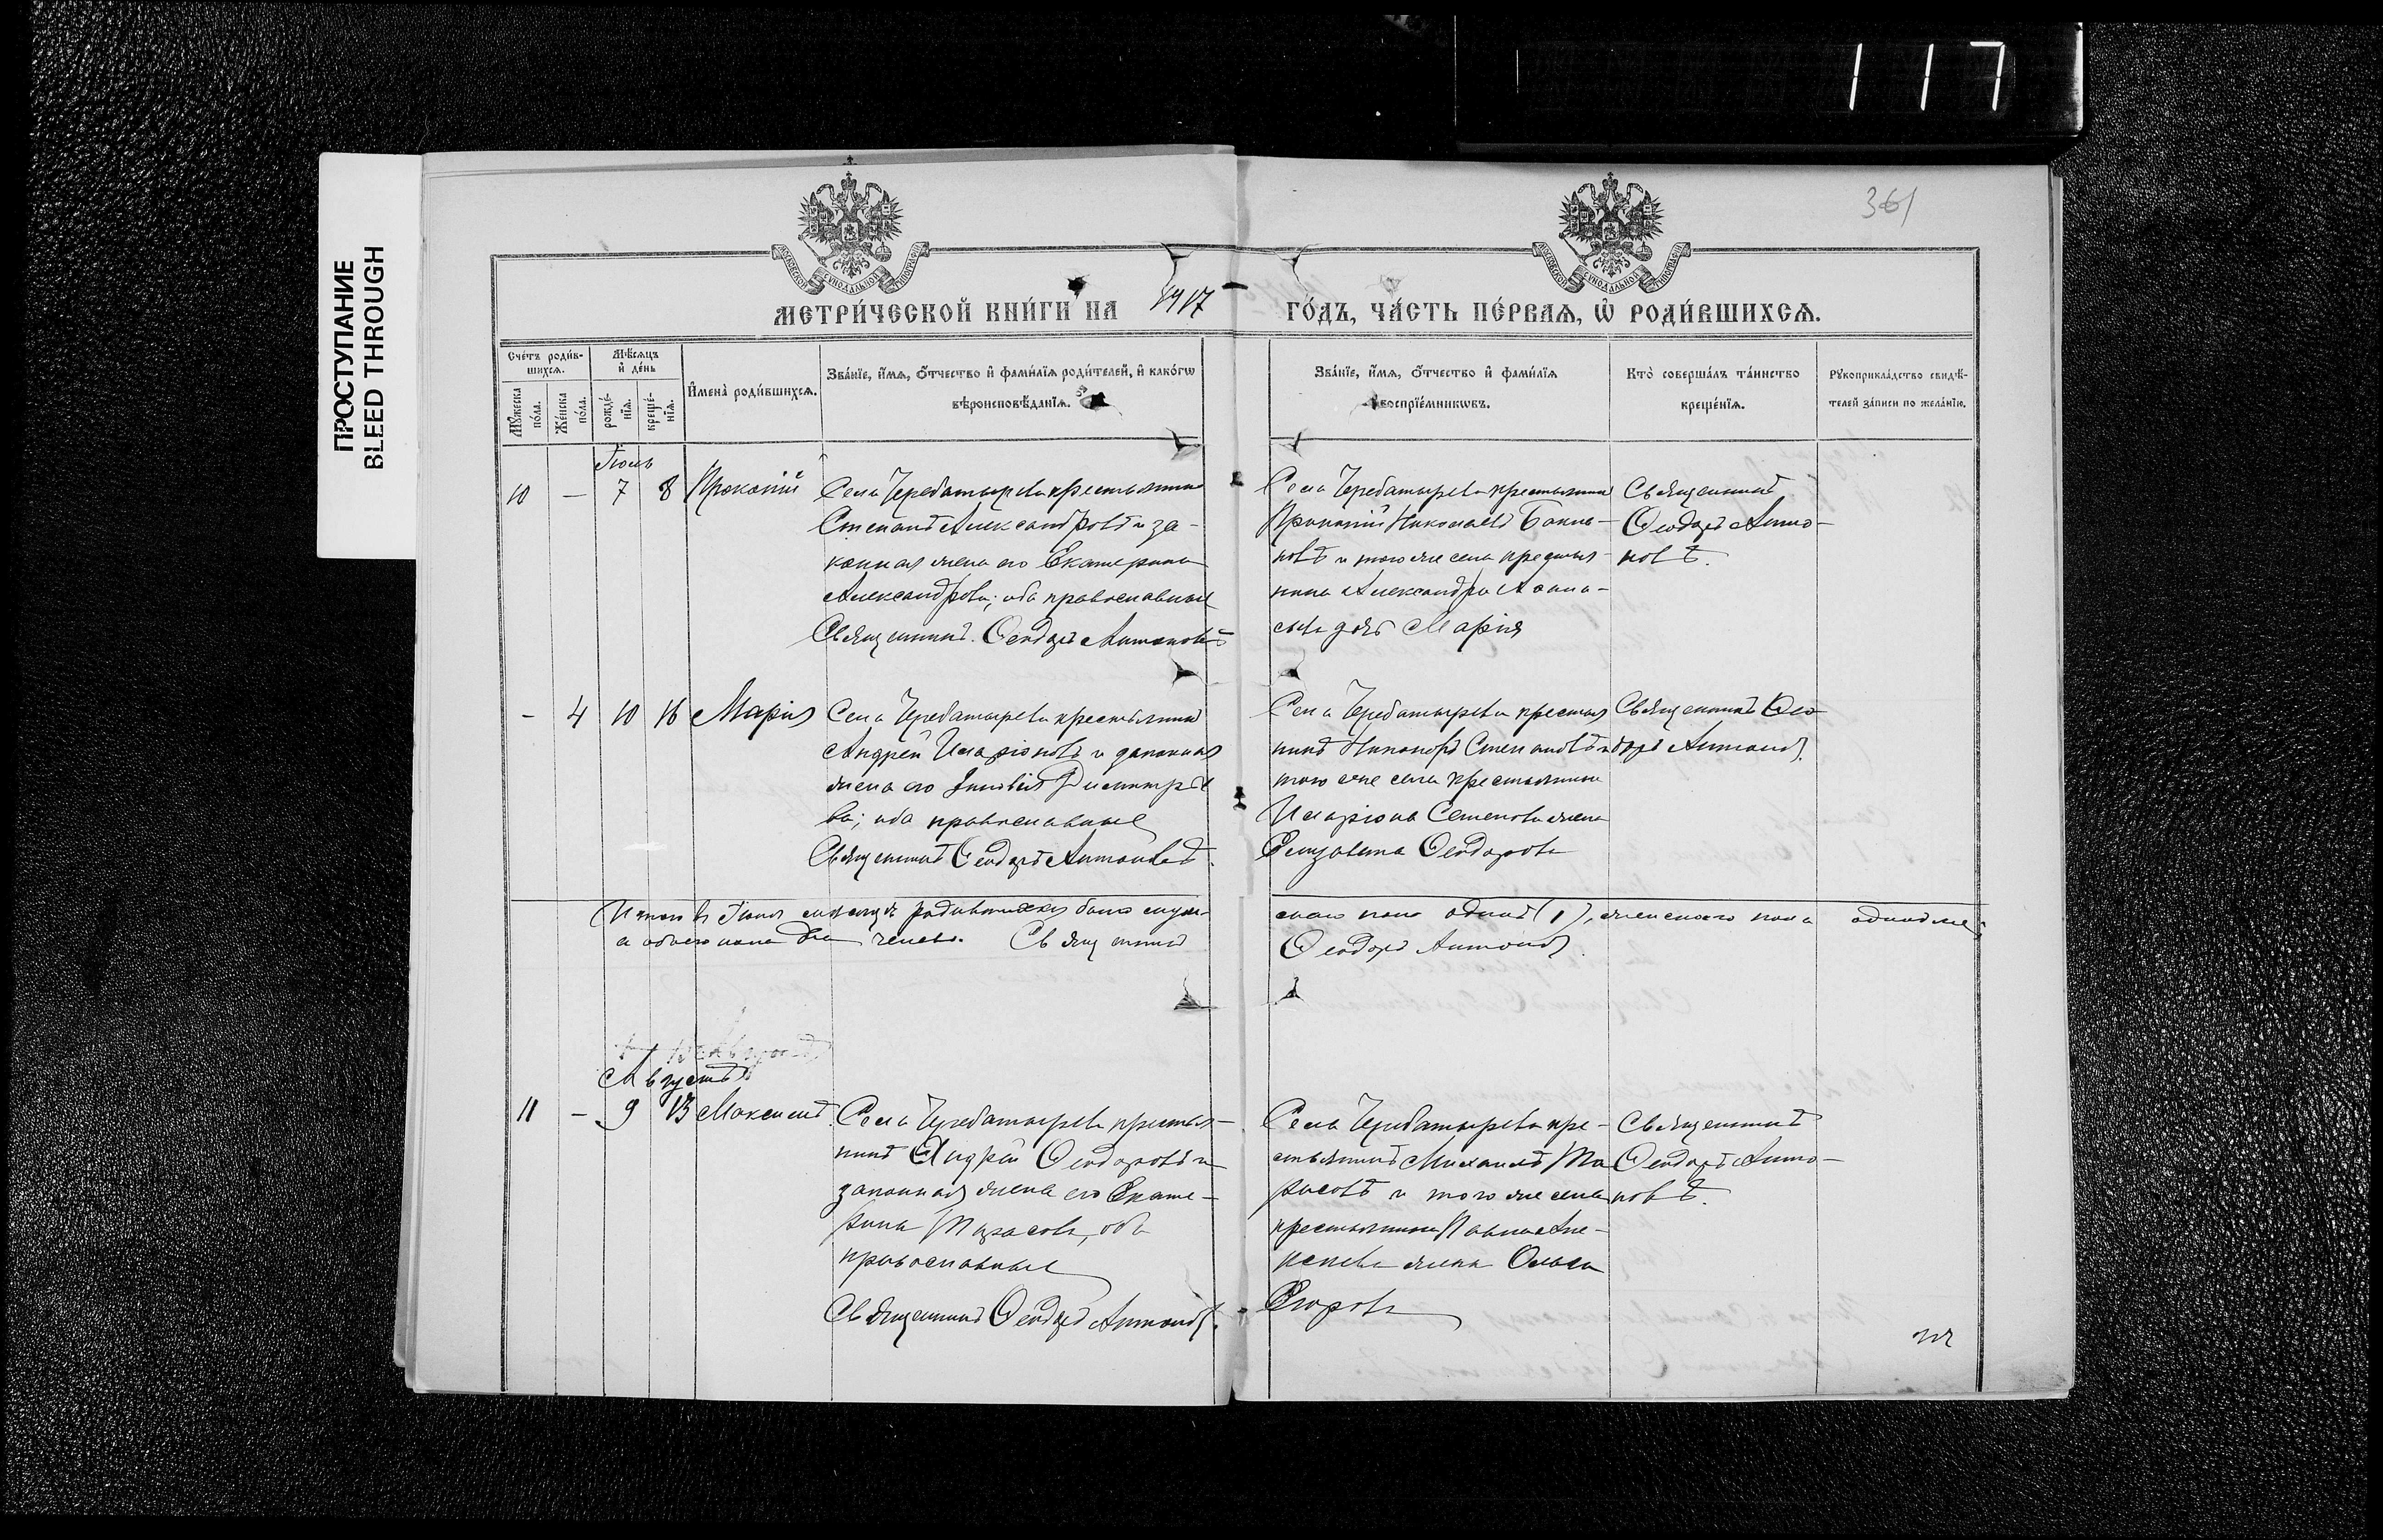 117
ПРОСТУПАНИЕ
BLEED THROUGH
361
МОСКОВСКОЙ СѴНОДАЛЬНОЙ ТИПОГРАФІИ
МОСКОВСКОЙ СѴНОДАЛЬНОЙ ТИПОГРАФІИ
МЕТРИ́ЧЕСКОЙ КНИ́ГИ НА 1917 ГО́ДЪ, ЧА́СТЬ ПЕ́РВАѦ, Ѡ РОДИ́ВШИХСѦ.
Сче́тъ роди́в-
шихсѧ.
Мꙋ́жеска
по́ла.
Же́нска
по́ла.
Мѣ́сѧцъ
и҆ де́нь
рожде́-
нїѧ.
креще́-
нїѧ.
И҆мена̀ роди́вшихсѧ.
Зва́нїе, и҆́мѧ, ѻ҆́тчество и҆ фами́лїѧ роди́телей, и҆ како́гѡ
вѣроисповѣ́данїѧ.
Зва́нїе, и҆́мѧ, ѻ҆́тчество и҆ фами́лїѧ
воспрїе́мникѡвъ.
Кто̀ соверша́лъ та́инство
креще́нїѧ.
Рꙋкоприкла́дство свидѣ́-
телей за́писи по жела́нїю.
10 — 7 8 Прокопій
Села Чербатырева крестьянинъ
Степанъ Александровъ и за-
конная жена его Екатерина
Александрова; оба православные
Священникъ Ѳеодоръ Антоновъ
Села Чербатырева крестьянинъ
Прокопій Николаевъ
новъ и того же села крестья-
нина Александра
дочь Марія
Священникъ
Ѳеодоръ Анто-
новъ.
- 4 10 16 Марія
Села Чербатырева крестьянинъ
Андрей Иларіоновъ и законная
жена его Зиновія Димитріе
ва; оба православные
Священникъ Ѳеодоръ Антоновъ.
Села Чербатырева крестья
нинъ Никаноръ Степановъ и
того же села крестьянина
Иларіона Семенова жена
Елизавета Ѳеодорова
Священникъ Ѳео
доръ Антоновъ.
Итого въ мѣсяцѣ родившихся было муж-
скаго пола одинъ (1), женскаго пола
а обоего пола два человѣ. Священникъ
Ѳеодоръ Антоновъ
Августъ
11 — 9 13 Максимъ.
Села Чербатырева крестья-
нинъ Андрей Ѳеодоровъ и
законная жена его Екате-
рина Тарасова, оба
православные
Священникъ Ѳеодоръ Антоновъ.
Села Чербатырева кре-
стьянинъ Михаилъ Та
расовъ и того же села
крестьянина Павла Але-
ксѣева жена Ольга
Егорова
Священникъ
Ѳеодоръ Анто-
новъ.